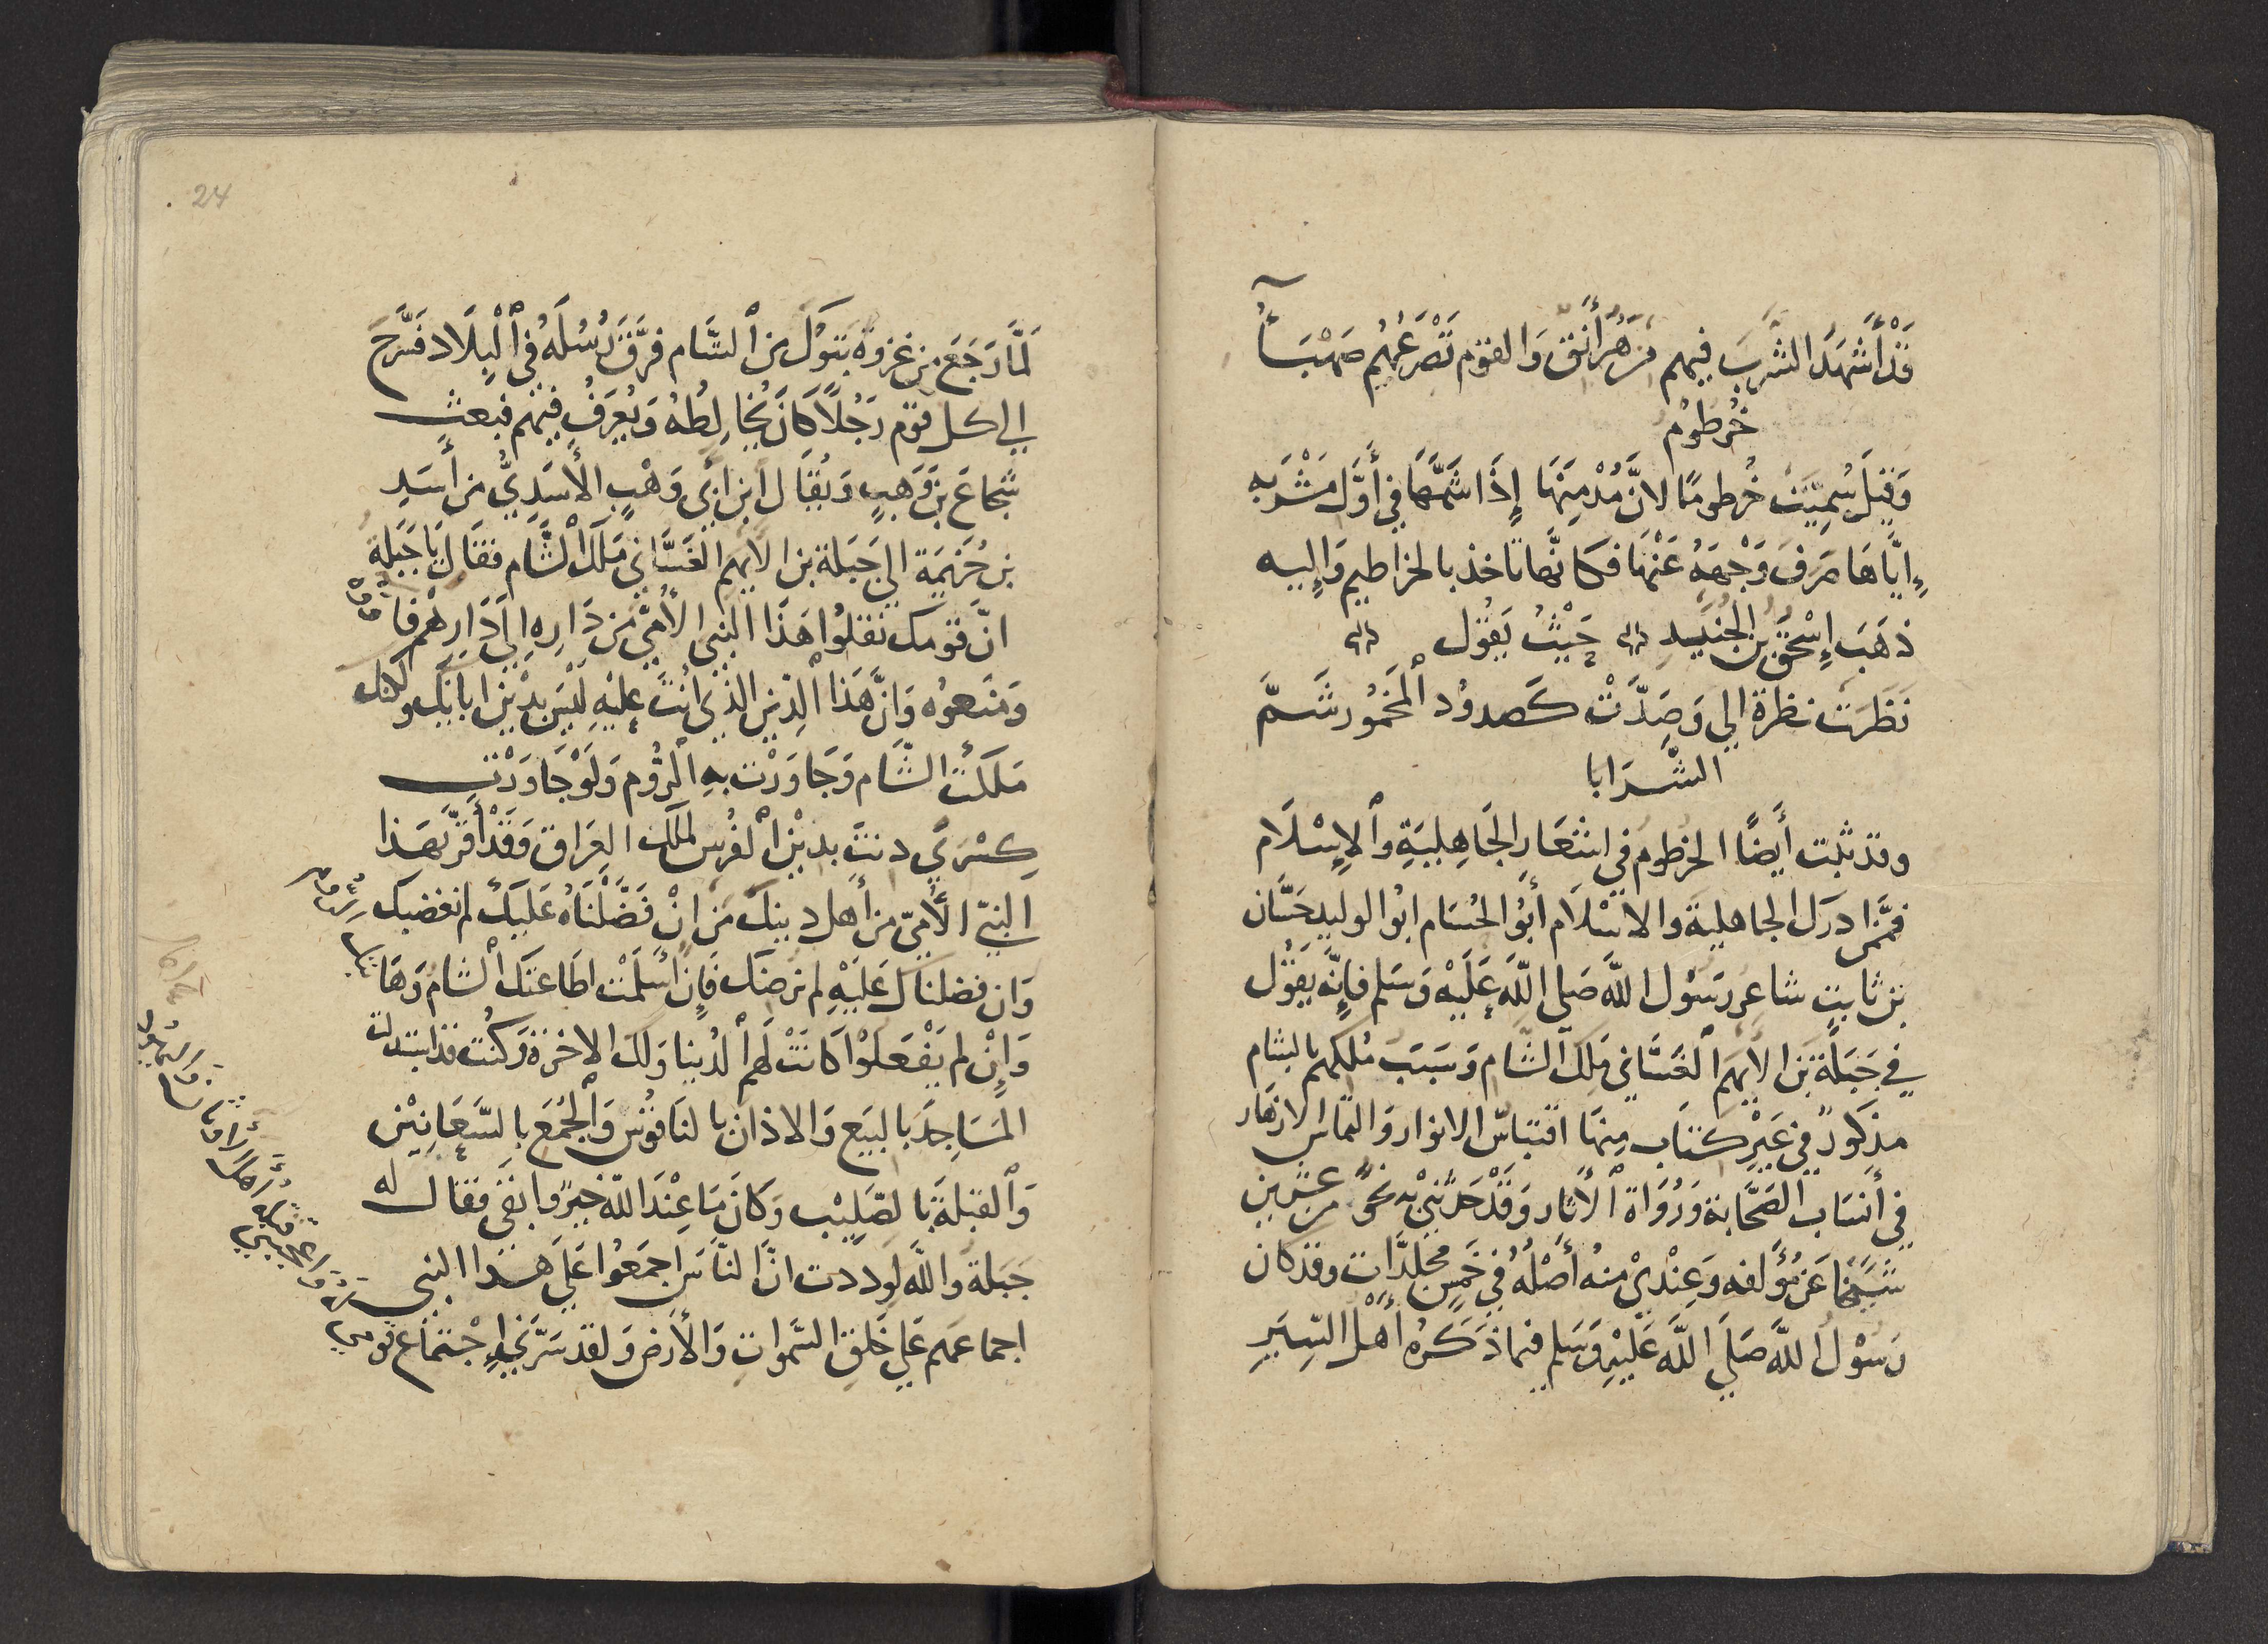 قَدْ أَشْهَدُ الشَّرْبَ فيهم مِزْهَرٌ أَنِقٌ وَالقَوْم تَصْرَعُهُم صَهْبَآءُ
خُرطُومُ
وَقِيلَ سُمِّيَتْ خُرطومًا لانَّ مُدْمِنَهَا إِذَا شَمَّهَا فِي أَوَّل مَشْرَبِه
إِيَّاهَا صَرَفَ وَجْهَهُ عَنْهَا فكانَّها تاخذ بالخراطيم وَإِليه
ذهَبَ إِسْحٰقُ بنُ الجُنَيد حَيْثُ يَقُول
نَظَرَتْ نظرة الي وَصَدَّتْ كَصدودِ المَخمُور شَمَّ
الشَّرَابا
وقد ثبت أَيضًا الخرطوم في اشعَارِ الجَاهِلِيَةِ والإِسْلَام
فممَّن ادرك الجاهلية والاسْلَام أَبُو الحُسَام ابُو الوليد حَسَّان
بن ثابتٍ شاعرُ رسُول اللَّه صَلي اللَّه عَلَيْه وَسَلم فإِنَّه يَقُول
في جَبَلَة بن الايهَم الغسَّاني مَلِك الشَّام وَسَبَبُ مُلكهم بالشام
مذكورٌ في غَيْرِ كتاب مِنهَا اقتباس الانوار والتماس الازهَار
في أَنسَاب الصَحَابة وَرُوَاة الأثار وَقَدْ حَدَّثَنِي بِه نحوٌ من عشرين
شيخًا عَن مُؤَلفه وَعِنْدِي منهُ أَصْلُهُ فِي خمس مجلدَّات وقد كان
رَسُوْلُ اللَّه صَلَي اللَّه عَلَيْهِ وَسَلم فيما ذكرهُ أَهْل السِّيَر
24
لَمَّا رَجَعَ من غزوة تبوكَ من الشَّام فرَّق رُسُلَهُ في الْبِلَاد فَسَرَّحَ
الي كل قوم رَجُلًا كانَ يُخالِطُهُ وَيُعْرَفُ فيهم فبعث
شُجَاعَ بن وَهَبٍ وَيُقَال ابن ابي وَهْبٍ الأَسَدِيُّ من أَسَدِ
بن خُزَيمَة الي جَبَلَة بن الايهم الغَسَّاني مَلك الشَّام فقال يَا جَبَلة
انَّ قومك نقلُوا هَذَا النبي الأُمِّي من دَارِه الي دَارِهْم فاووه
وَمَنَعوُه وَانَّ هَذا الدِّين الذي انْتَ عليْهِ لَيْسَ بدين ابائِك ولكنك
مَلكتَ الشَّام وَجَاوَرْتَ بهِ الرُّوم وَلَوْ جَاوَرْتَ
كِسْرَي دنتَ بدين الفُرس لملك العِرَاق وَقَدْ أَقرَّ بهَذا
النبيّ الأُمِّيّ من أهل دينك مَن انْ فَضَّلْنَاهُ عَليكَ لم نغضبك
وَان فضلناكَ عَلَيْهِ لم نرضك فَإِن أَسْلَمْتَ اطاعتك الشامُ وَهَابتك
وَإِنْ لم يَفْعَلوْا كانَتْ لَهُم الدُّنيا وَلَكَ الاخرَة وَكُنت قد استبدلت
المَسَاجِدَ بالبيَع وَالاذان بالنَاقُوس وَالجُمَعَ بالشَّعَانِيْن
وَالقبلةَ بالصَّلِيْب وَكانَ مَا عِنْدَ اللَّه خيرٌ وابقَي فقال له
جَبَلة واللَّه لوددت انَّ النَّاسَ اجمَعُوا عَلَي هذا النبي
اجماعَهم عَلي خَلقِ السَّمواتِ وَالأَرض وَلقد سَرَّني اجْتمَاع قومي